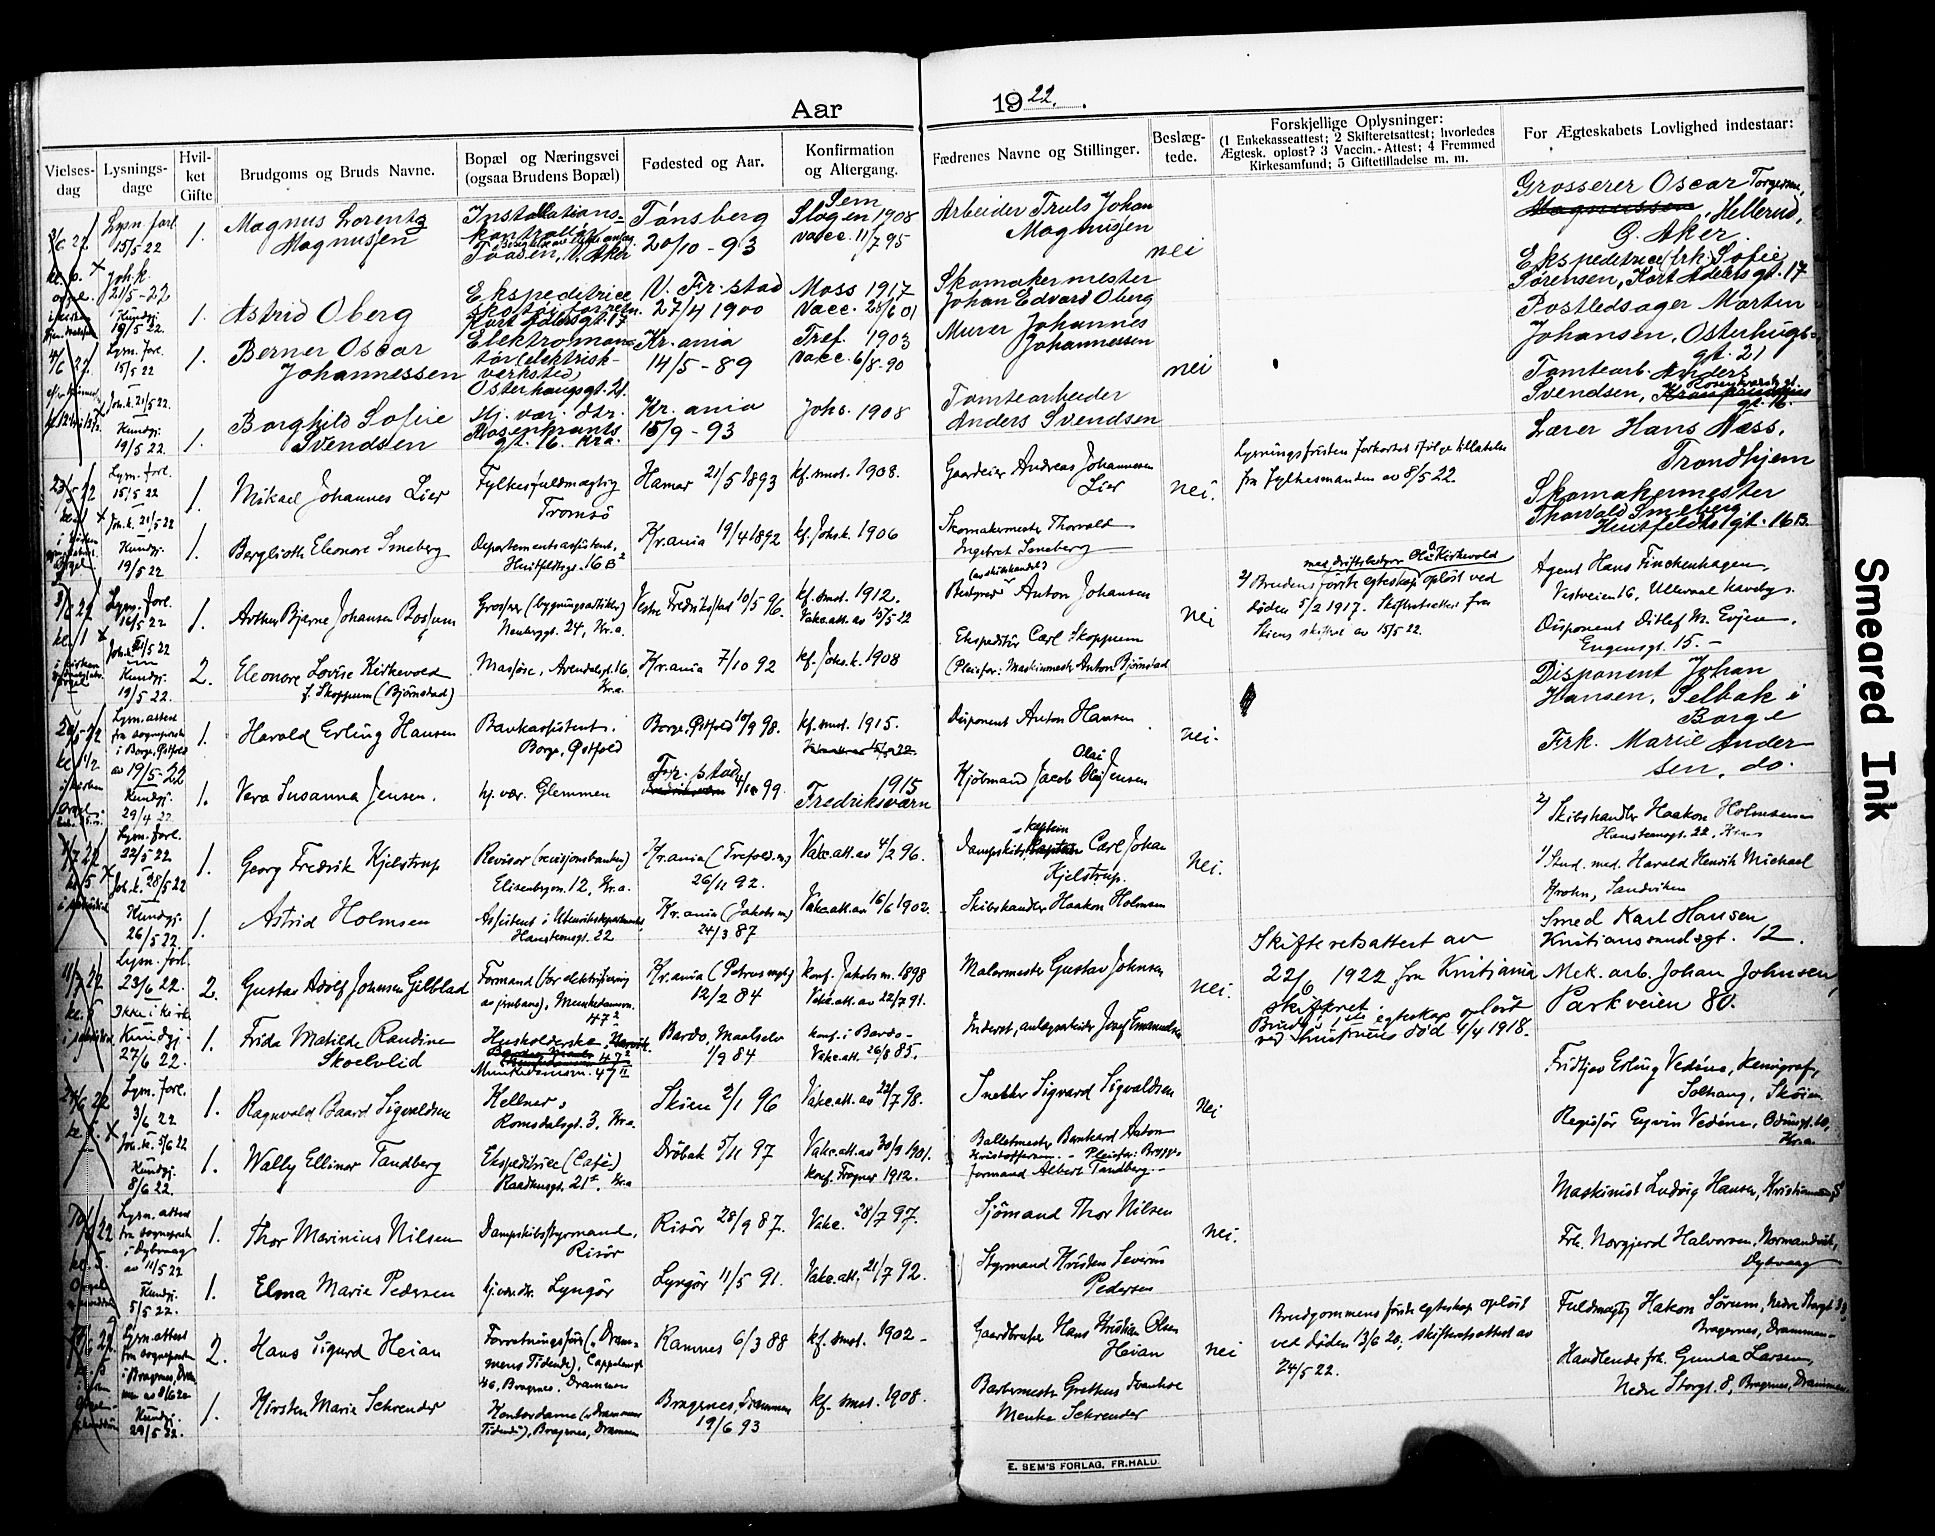 Aar 1922.
Vielses-dag
Lysnings-dage
Hvil-ket Gifte
Brudgoms og Bruds Navne.
Bopæl og Næringsvei (ogsaa Brudens Bopæl)
Fødested og Aar.
Konfirmation og Altergang.
Fædrenes Navne og Stillinger.
Beslæg-tede.
Forskjellige Oplysninger:
(1 Enkekasseattest; 2 Skifteretsattest; hvorledes
Ægtesk. opløst? 3 Vaccin.-Attest; 4 Fremmed
Kirkesamfund; 5 Giftetilladelse m. m.
For Ægteskabets Lovlighed indestaar:
Lysn. forl.
15/5 22
1.
Magnus Lorentz
Magnussen
Installations-
kontrollør
V. Aker
Tønsberg
20/10 - 93
Sem
Slagen 1908
vacc. 11/7 95
Arbeider Truls Johan
Magnussen
nei
Grosserer Oscar Torgersen,
Hellerud,
Ø. Aker.
Joh.k.
21/5-22
Kundgj.
19/5 22.
1.
Astrid Oberg
Ekspeditrice
Kort Adelersgt. 17
V. Fr.stad
27/4 1900
Moss 1917
Vacc. 28/6 01
Skomakermester
Johan Edvard Oberg
Ekspeditrice frk. Sofie
Sørensen, Kort Adelersgt. 17
Lysn. forl.
15/5 22
1.
Berner Oscar
Johannessen
Elektromon-
tør (elektrisk
verksted)
Osterhausgt. 21
Kr.ania
14/5 - 89
Tref. 1903
Vacc. 6/8-90
Murer Johannes
Johannessen
nei
Postledsager Morten
Johansen, Osterhaugs-
gt. 21
Joh.k. 21/5 22.
Kundgj.
19/5 22.
1.
Borghild Sofie
Svendsen
Hj. vær. dtr.
Rosenkrants
gt. 16. Kra.
Kr.ania
15/9 - 93
Johs. 1908
Tomtearbeider
Anders Svendsen
Tomtearb. Anders
Svendsen, Rosenkrantz gt.
gt. 16.
23/5 22
Lysn. forl.
15/5 22
1.
Mikael Johannes Lier
Fylkesfuldmægtig
Tromsø
Hamar 21/5 1893
kf. smst. 1908.
Gaardeier Andreas Johannesen
Lier
nei.
Lysningsfristen forkortet ifølge tillatelse
fra Fylkesmanden av 8/5 22.
Lærer Hans Næss,
Trondhjem
Joh.k. 21/5 22
Kundgj.
19/5 22
1.
Berglioth Eleonore Smeberg
Departementsassistent,
Huitfeldtsgt. 16 B
Kr.ania 19/4 1892
kf. Johs.k. 1906
Skomakermester Thorvald
Ingebret Smeberg
Skomakermester
Thorvald Smeberg
Huitfeldtsgt. 16 B.
Lysn. forl.
16/5 22
1.
Arthur Bjarne Johansen Bossum
Grosserer (bygningsartikler)
Neubergsgt. 24, Kr.a.
Vestre Fredrikstad 10/5 96.
kf. smst. 1912.
Vakc.att. av 15/5 22
Anton Johansen
nei
med driftsbestyrer Ole Kirkevold
2/ Brudens første egteskap opløst ved
døden 5/2 1917. Skifteretsattest fra
Skiens skifteret av 15/5 22.
Agent Hans Finckenhagen,
Vestveien 16, Ullevaal haveby.
Kundgj.
19/5 22.
2.
Eleonore Lovise Kirkevold
f. Skoppum (Bjørnstad)
Massøse, Arendalsgt. 16.
Kr.a.
Kr.ania 7/10 92
kf. Johs.k. 1908
Ekspeditør Carl Skoppum
(Pleiefar: Maskinmester Anton Bjørnstad
Disponent Ditlef M. Evjen,
Eugensgt. 15.
Lysn. attest
fra sogneprest
i Borge, Østfold
av 19/5-22
1.
Harald Erling Hansen
Bankassistent.
Borge, Østfold
Borge, Østfold 10/9 98.
kf. smst. 1915.
Disponent Anton Hansen
nei.
Disponent Johan
Hansen, Selbak i
Borge
Kundgj.
29/4 22
1.
Vera Susanna Jensen.
hj. vær. Glemmen
Fr. stad
4/10 99
1915
Fredriksværn
Kjøbmand Jacob Olai Jensen
Frk. Marie Ander
sen, do.
Lysn. forl.
22/5 22
1.
Georg Fredrik Kjelstrup
Revisor (revisjonsbanken)
Elisenbergvn. 12, Kr.a.
Kr.ania (Trefold.m.)
26/11 92.
Vakc.att. av 4/2 96.
Dampskibskaptein Carl Johan
Kjelstrup.
nei.
2/ Skibshandler Haakon Holmsen
Hansteensgt. 22, Kr.a
Joh.k. 28/5 22
Kundgj.
26/5 22.
1.
Astrid Holmsen
Assistent i Utenriksdepartementet
Hansteensgt. 22
Kr.ania (Jakobs m)
24/3 87
Vakc.att. av 16/6 1902.
Skibshandler Haakon Holmsen
1/ Stud. med. Harald Henrik Michael
Krohn, Sandviken
11/7 22
Lysn. forl.
23/6 22.
Ikke i kirke
2.
Gustav Adolf Johnsen Gilblad
Formand (for elektrifisering
av jernbane), Munkedamsvn.
47
Kr.ania (Petrus mgh)
12/2 84
Konf. Jakobs m. 1898
Vakc.att. av 22/7 91.
Malermester Gustav Johnsen
nei.
Skifteretsattest av
22/6 1922 fra Kristiania
skifteret
egteskap opløst
ved hustruens død 4/4 1918.
Smed Karl Hansen
Kristianssandsgt. 12.
Mek. arb. Johan Johnsen,
Parkveien 80.
Kundgj.
27/6 22.
1.
Frida Matilde Randine
Skoelvlid
Husholderske,
Munkedamsvn. 47
Bardo, Maalselv
1/9 84
konf. i Bardo -
Vakc.att. 26/8 85.
Inderst, anlægsarbeider Josef Emanuelsen
24/6 22
Lysn. forl.
3/6 22
1.
Ragnvald Baard Sigvaldsen
Kellner,
Romsdalsgt. 3, Kr.a.
Skien 2/1 96
Vakc.att. av 22/7 98.
Snekker Sigvard Sigvaldsen
nei
Fridtjov Erling Vedéns, kemigraf,
Solhaug, Skøien
Joh.k. 5/6 22
Kundgj.
8/6 22.
1.
Wally Ellinor Tandberg
Ekspeditrice (Café)
Raadhusgt. 21, Kr.a
Drøbak 5/11 97
Vakc.att. av 30/9 1901.
konf. Frogner 1912.
Balletmester Bernhard Anton
Kristoffersen. - Pleiefar: Brygge
formand Albert Tandberg.
Regissør Eyvin Vedéns, Odinsgt. 10,
Kr.a
Lysn. attest
fra sogneprest
i Dybvaag
av 11/5 22
1.
Thor Marinius Nilsen
Dampskibsstyrmand,
Risør
Risør 28/9 87.
Vakc. 28/7 97.
Sjømand Thor Nilsen
nei.
Maskinist Ludvig Hansen,
Kundgj.
5/5 22.
1.
Elma Marie Pedersen
hj. vær. dtr. Lyngør
Lyngør 11/5 91.
Vakc.att. 21/7 92.
Styrmand Kristen Severin
Pedersen
Frk. Norgjerd Halvorsen, Normandvik,
Dybvaag
Lysn. attest
fra sognepresten
i Bragernes, Dram
men av 8/6 22
2.
Hans Sigurd Heian
Forretningsfører („Dram-
mens Tidende), Cappelensgt
46, Bragernes. Drammen
Ramnes 6/3 88
kf. smst. 1902.
Gaardbruker Hans Kristian Olsen
Heian
nei
Brudgommens første egteskap opløst
ved døden 13/6 20, skifteretsattest av
24/5 22.
Fuldmægtig Hakon Sørum, Nedre Storgt
Bragernes, Drammen
Kundgj.
29/5 22.
1.
Kirsten Marie Schrender
Kontordame („Drammens
Tidende"), Bragernes, Drammen
Bragernes, Drammen
19/6 93
kf. smst. 1908.
Barbermester
Menke Schrender
Handlende frk. Gunda Larsen,
Nedre Storgt. 8, Bragernes, Drammen.
E. SEM'S FORLAG, FR.HALD.
Smeared Ink